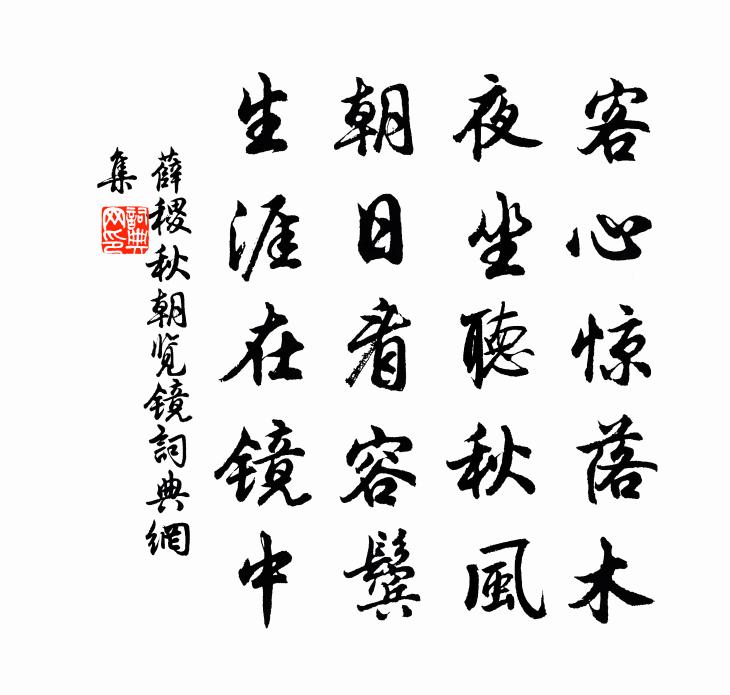 客心惊落木
夜坐聽秋風
朝日看容鬢
生涯在镜中
薛稷秋朝览镜詞典網
集
詞典
网印